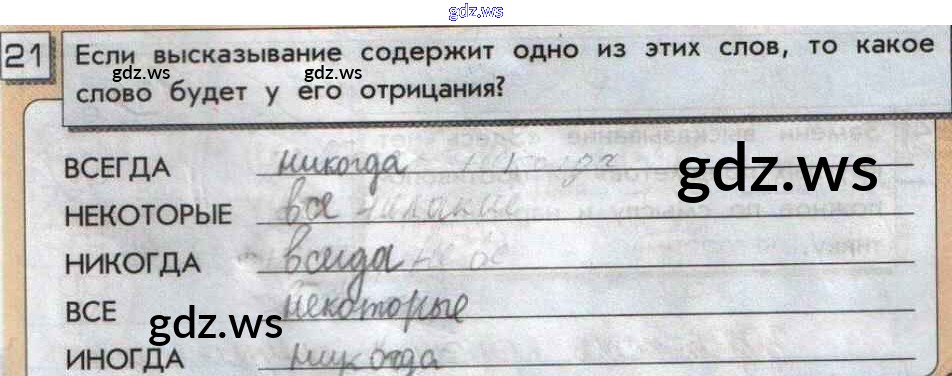 gdz.ws
21 Если высказывание содержит одно из этих слов, то какое
gdz.ws gdz.ws
слово будет у его отрицания?
ВСЕГДА никогда gdz.ws
НЕКОТОРЫЕ все
НИКОГДА всегда
ВСЕ некоторые
gdz.ws
ИНОГДА никогда